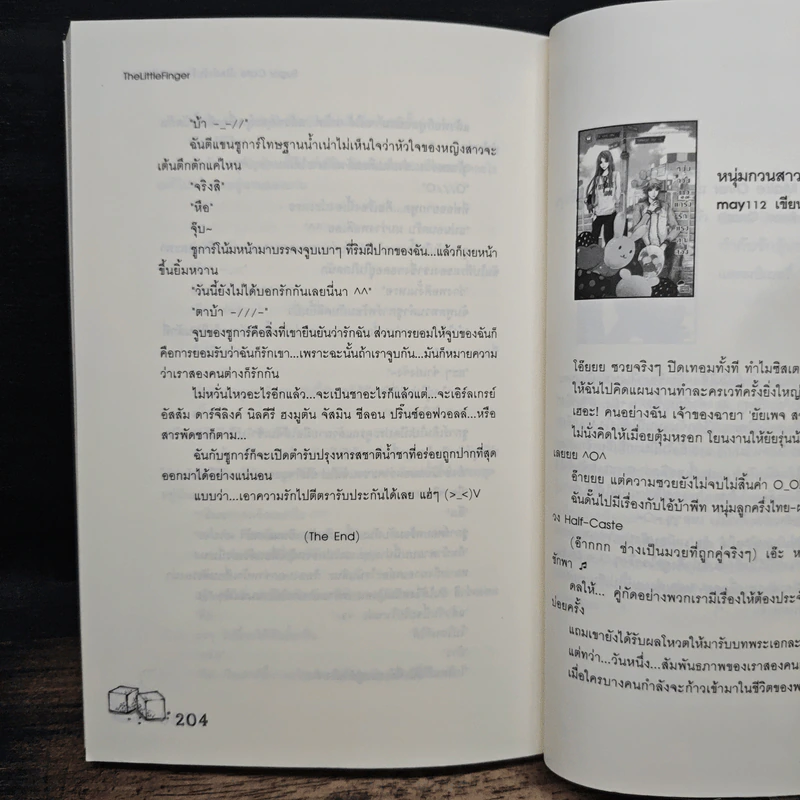 TheLittleFinger
"บ้า -_-//"
ฉันตีแขนชูการ์โทษฐานน้ำเน่าไม่เห็นใจว่าหัวใจของหญิงสาวจะ
เต้นตึกตักแค่ไหน
"จริงสิ"
"หือ"
จุ๊บ~
ชูการ์โน้มหน้ามาบรรจงจูบเบาๆ ที่ริมฝีปากของฉัน...แล้วก็เงยหน้า
ขึ้นยิ้มหวาน
"วันนี้ยังไม่ได้บอกรักกันเลยนี่นา ^^"
"ตาบ้า -///-"
จูบของชูการ์คือสิ่งที่เขายืนยันว่ารักฉัน ส่วนการยอมให้จูบของฉันก็
คือการยอมรับว่าฉันก็รักเขา...เพราะฉะนั้นถ้าเราจูบกัน...มันก็หมายความ
ว่าเราสองคนต่างก็รักกัน
ไม่หวั่นไหวอะไรอีกแล้ว...จะเป็นชาอะไรก็แล้วแต่...จะเอิร์ลเกรย์
อัสสัม ดาร์จีลิงค์ นิลคีรี ฮงมูตัน จัสมิน ซีลอน ปริ๊นซ์ออฟวอลล์...หรือ
สารพัดชาก็ตาม...
ฉันกับชูการ์ก็จะเปิดตำรับปรุงหารสชาติน้ำชาที่อร่อยถูกปากที่สุด
ออกมาได้อย่างแน่นอน
แบบว่า...เอาความรักไปตีตรารับประกันได้เลย แฮ่ๆ (>_<)V
(The End)
204
หนุ่มกวนสาว
may112 เขียน
โอ๊ยยย ซวยจริงๆ ปิดเทอมทั้งที ทำไมซิสเต
ให้ฉันไปคิดแผนงานทำละครเวทีครั้งยิ่งใหญ่
เฮอะ! คนอย่างฉัน เจ้าของฉายา 'ยัยเพจ ส
ไม่นั่งคิดให้เมื่อยตุ้มหรอก โยนงานให้ยัยรุ่นน้
เลยยย ^O^
อ๊ายยย แต่ความซวยยังไม่จบไม่สิ้นค่า O_O
ฉันดั๊นไปมีเรื่องกับไอ้บ้าพีท หนุ่มลูกครึ่งไทย-
วง Half-Caste
(อ๊ากกก ช่างเป็นมวยที่ถูกคู่จริงๆ) เอ๊ะ ห
ชักพา ♫
ดลให้... คู่กัดอย่างพวกเรามีเรื่องให้ต้องประจั
บ่อยครั้ง
แถมเขายังได้รับผลโหวตให้มารับบทพระเอกละ
แต่ทว่า...วันหนึ่ง...สัมพันธภาพของเราสองคน
เมื่อใครบางคนกำลังจะก้าวเข้ามาในชีวิตของพ